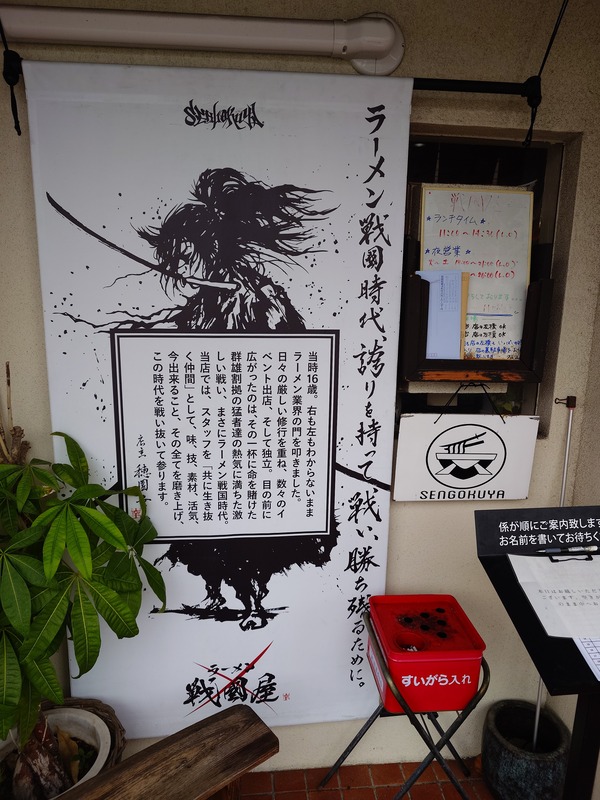 SENGOKUYA
ラーメン戦国時代、誇りを持って戦い、勝ち残るために。
当時16歳。右も左もわからないまま
ラーメン業界の門を叩きました。
日々の厳しい修行を重ね、数々のイ
ベント出店、そして独立。目の前に
広がったのは、その一杯に命を賭けた
群雄割拠の猛者達の熱気に満ちた激
しい戦い、まさにラーメン戦国時代。
当店では、スタッフを「共に生き抜
く仲間」として、味、技、素材、活気、
今出来ること、その全てを磨き上げ、
この時代を戦い抜いて参ります。
店主
ラーメン
戦国屋
★ランチタイム★
★夜営業★
SENGOKUYA
係が順にご案内致します
お名前を書いてお待ちく
すいがら入れ